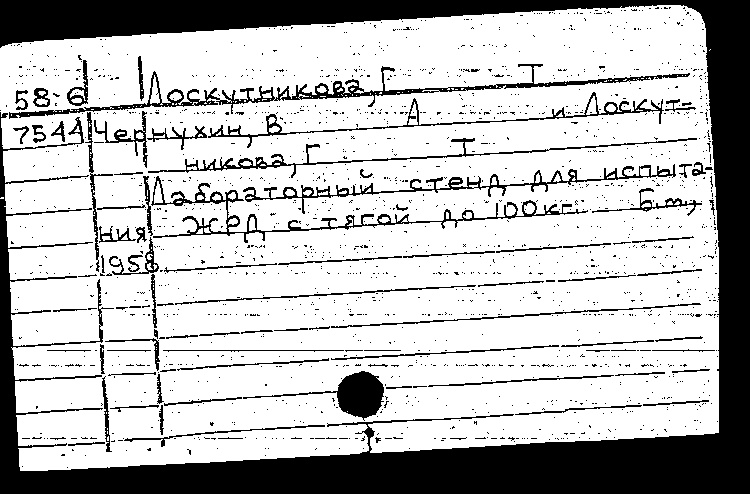 58:6 Лоскутникова, Г Т
7544 Чернухин, В А и Лоскут-
никова, Г Т
Лабораторный стенд для испыта-
ния ЖРД с тягой до 100кг. Б.м.,
1958.